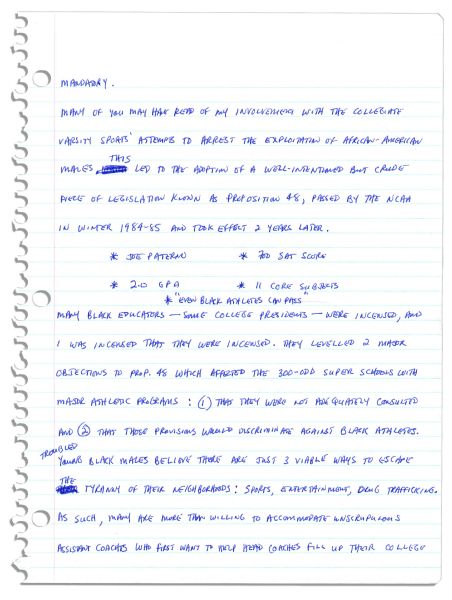 MANDATORY.
MANY OF YOU MAY HAVE READ OF MY INVOLVEMENT WITH THE COLLEGIATE
VARSITY SPORTS' ATTEMPTS TO ARREST THE EXPLOITATION OF AFRICAN-AMERICAN
MALES THIS LED TO THE ADOPTION OF A WELL-INTENTIONED BUT CRUDE
PIECE OF LEGISLATION KNOWN AS PROPOSITION 48, PASSED BY THE NCAA
IN WINTER 1984-85 AND TOOK EFFECT 2 YEARS LATER.
* JOE PATERNO * 700 SAT SCORE
* 2.0 GPA * 11 CORE SUBJECTS
* "EVEN BLACK ATHLETES CAN PASS"
MANY BLACK EDUCATORS — SOME COLLEGE PRESIDENTS — WERE INCENSED, AND
I WAS INCENSED THAT THEY WERE INCENSED. THEY LEVELLED 2 MAJOR
OBJECTIONS TO PROP. 48 WHICH AFFECTED THE 300-ODD SUPER SCHOOLS WITH
MAJOR ATHLETIC PROGRAMS: (1) THAT THEY WERE NOT ADEQUATELY CONSULTED
AND (2) THAT THOSE PROVISIONS WOULD DISCRIMINATE AGAINST BLACK ATHLETES.
TROUBLED YOUNG BLACK MALES BELIEVE THERE ARE JUST 3 VIABLE WAYS TO ESCAPE
THE TYRANNY OF THEIR NEIGHBORHOODS: SPORTS, ENTERTAINMENT, DRUG TRAFFICKING.
AS SUCH, MANY ARE MORE THAN WILLING TO ACCOMMODATE UNSCRUPULOUS
ASSISTANT COACHES WHO FIRST WANT TO HELP HEAD COACHES FILL UP THEIR COLLEGE